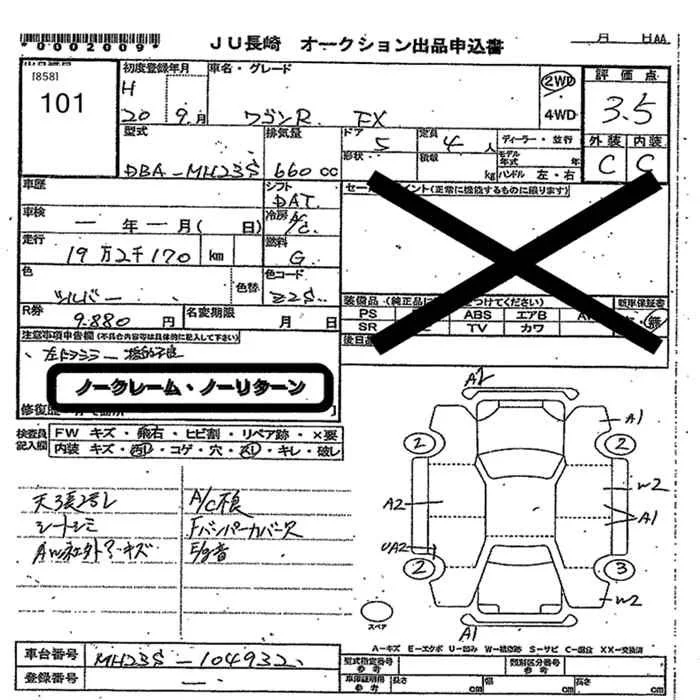 *0002009*
JU長崎 オークション出品申込書
月 日AA
[858]
101
初度登録年月
H
20 9月
車名・グレード
ワゴンR FX
2WD
4WD
評価点
3.5
型式
DBA-MH23S
排気量
660cc
ドア
5
定員
4人
形状
積載
kg
ディーラー・並行
モデル年式 年
ハンドル 左・右
外装
C
内装
C
車歴
シフト
DAT
セールスポイント(正常に機能するものに限ります)
車検
一年一月( 日)
冷房
A/C
走行
19万2千170 km
燃料
G
色
シルバー
色替
色コード
Z2S
R券
9.880円
名変期限
月 日
装備品(純正品に つけてください)
PS
ABS
エアB
SR
TV
カワ
新車保証書
後日品
注意事項申告欄(不具合内容等は具体的に記入して下さい)
ノークレーム・ノーリターン
検査員記入欄
FW キズ・飛石・ヒビ割・リペア跡・×要
内装 キズ・汚れ・コゲ・穴・スレ・キレ・破レ
A/C不良
シートシミ
Fバンパーカバー
E/g音
A2
A1
2
2
W2
A2
A1
UA2
2
3
W2
A1
スペア
A-キズ E-エクボ U-凹み W-補修跡 S-サビ C-腐食 XX-交換済
車台番号
MH23S-104932
登録番号
一
型式指定番号
参考
類別区分番号
参考
車庫証明用
参考
長さ
cm
幅
cm
高さ
cm